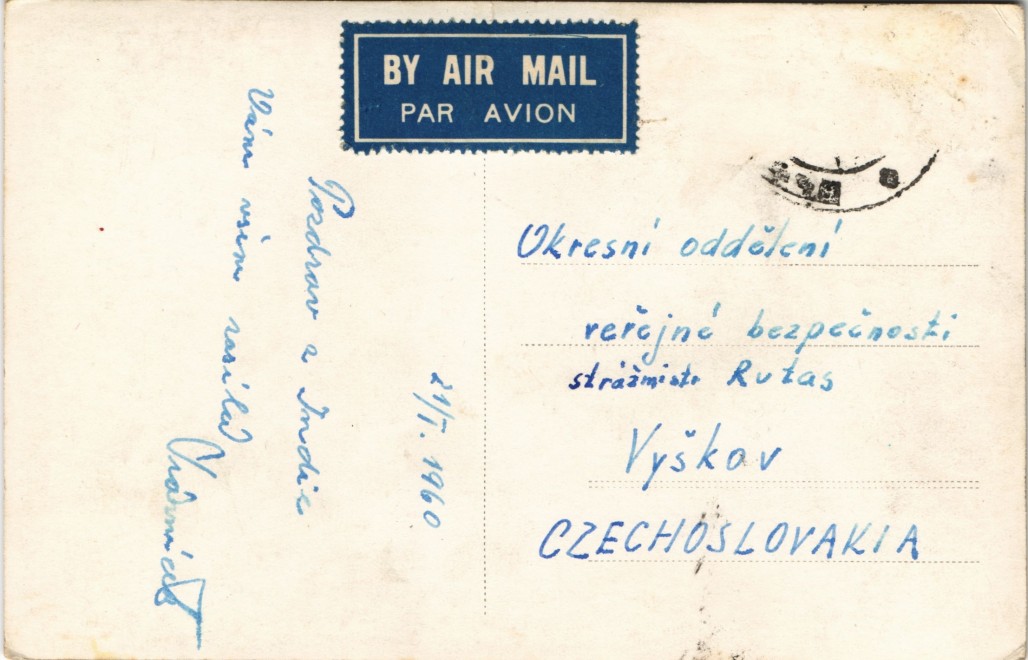 BY AIR MAIL
PAR AVION
21/I. 1960
Pozdrav z Indie
Vám všem zasílá
Okresní oddělení
veřejné bezpečnosti
strážmistr Rutas
Vyškov
CZECHOSLOVAKIA